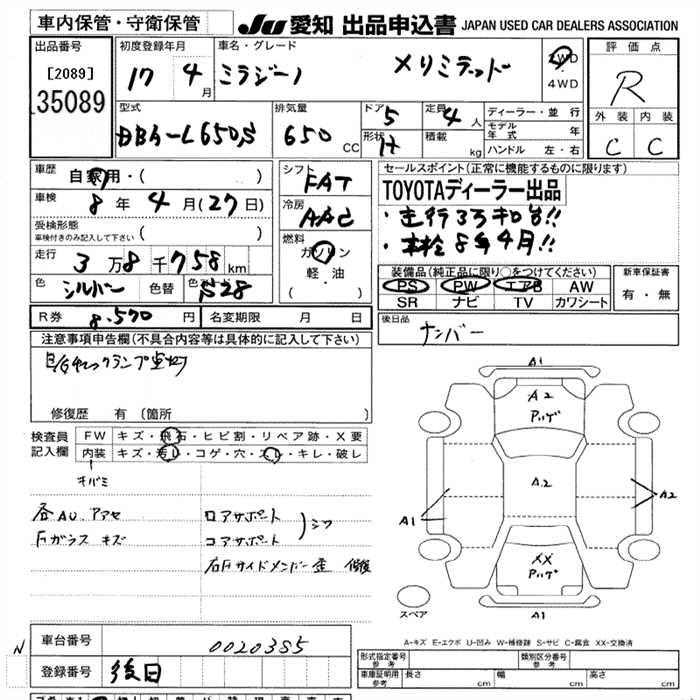 車内保管・守衛保管
JU 愛知 出品申込書 JAPAN USED CAR DEALERS ASSOCIATION
出品番号
[2089]
35089
初度登録年月
17 4月
車名・グレード
ミラジーノ
2WD
・
4WD
評価点
R
外装 内装
C C
型式
DBA-L650S
排気量
650 CC
ドア 5
形状
定員 4人
積載 kg
ディーラー・並行
モデル年式 年
ハンドル 左・右
車歴
自家用・( )
車検
8年4月(27日)
受検形態
車検付きのみ記入して下さい ( )
走行
3万8千758km
色 シルバー 色替 S28
シフト FAT
冷房 AAC
燃料
ガソリン
・
軽油
( )
セールスポイント(正常に機能するものに限ります)
TOYOTAディーラー出品
・走行3万キロ台!!
・車検8年4月!!
装備品(純正品に限り○をつけてください)
PS PW エアB AW
SR ナビ TV カワシート
新車保証書
有・無
R券 8.570円
名変期限 月 日
後日品
ナンバー
注意事項申告欄(不具合内容等は具体的に記入して下さい)
修復歴 有(箇所 )
検査員記入欄
FW キズ・飛石・ヒビ割・リペア跡・X要
内装 キズ・汚レ・コゲ・穴・スレ・キレ・破レ
キバミ
各AU、アアセ
Fガラス キズ
ロアサポート
コアサポート
右Fサイドメンバー歪 修復
A1
A2
A2
A1
A2
XX
A1
スペア
A-キズ E-エクボ U-凹み W-補修跡 S-サビ C-腐食 XX-交換済
N
車台番号 0020385
登録番号 後日
形式指定番号
参考
類別区分番号
参考
車庫証明用
参考
長さ cm
幅 cm
高さ cm